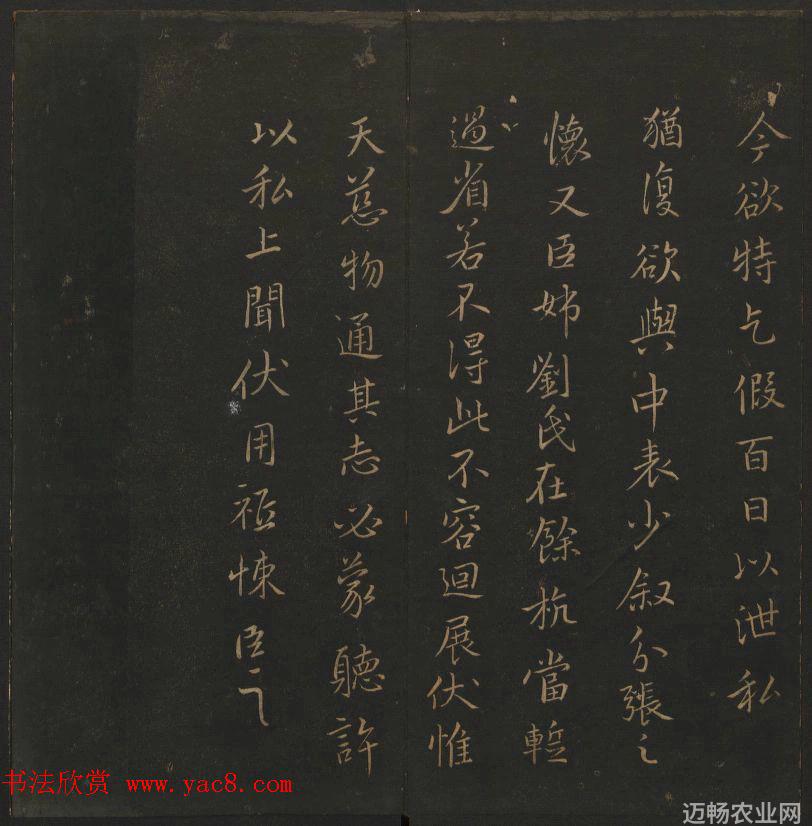 今欲特乞假百日以泄私
猶復欲與中表少叙分張之
懷又臣姊劉氏在餘杭當蹔
過省若不得此不容迴展伏惟
天慈物通其志必蒙聽許
以私上聞伏用祗悚臣
书法欣赏 www.yac8.com
迈畅农业网